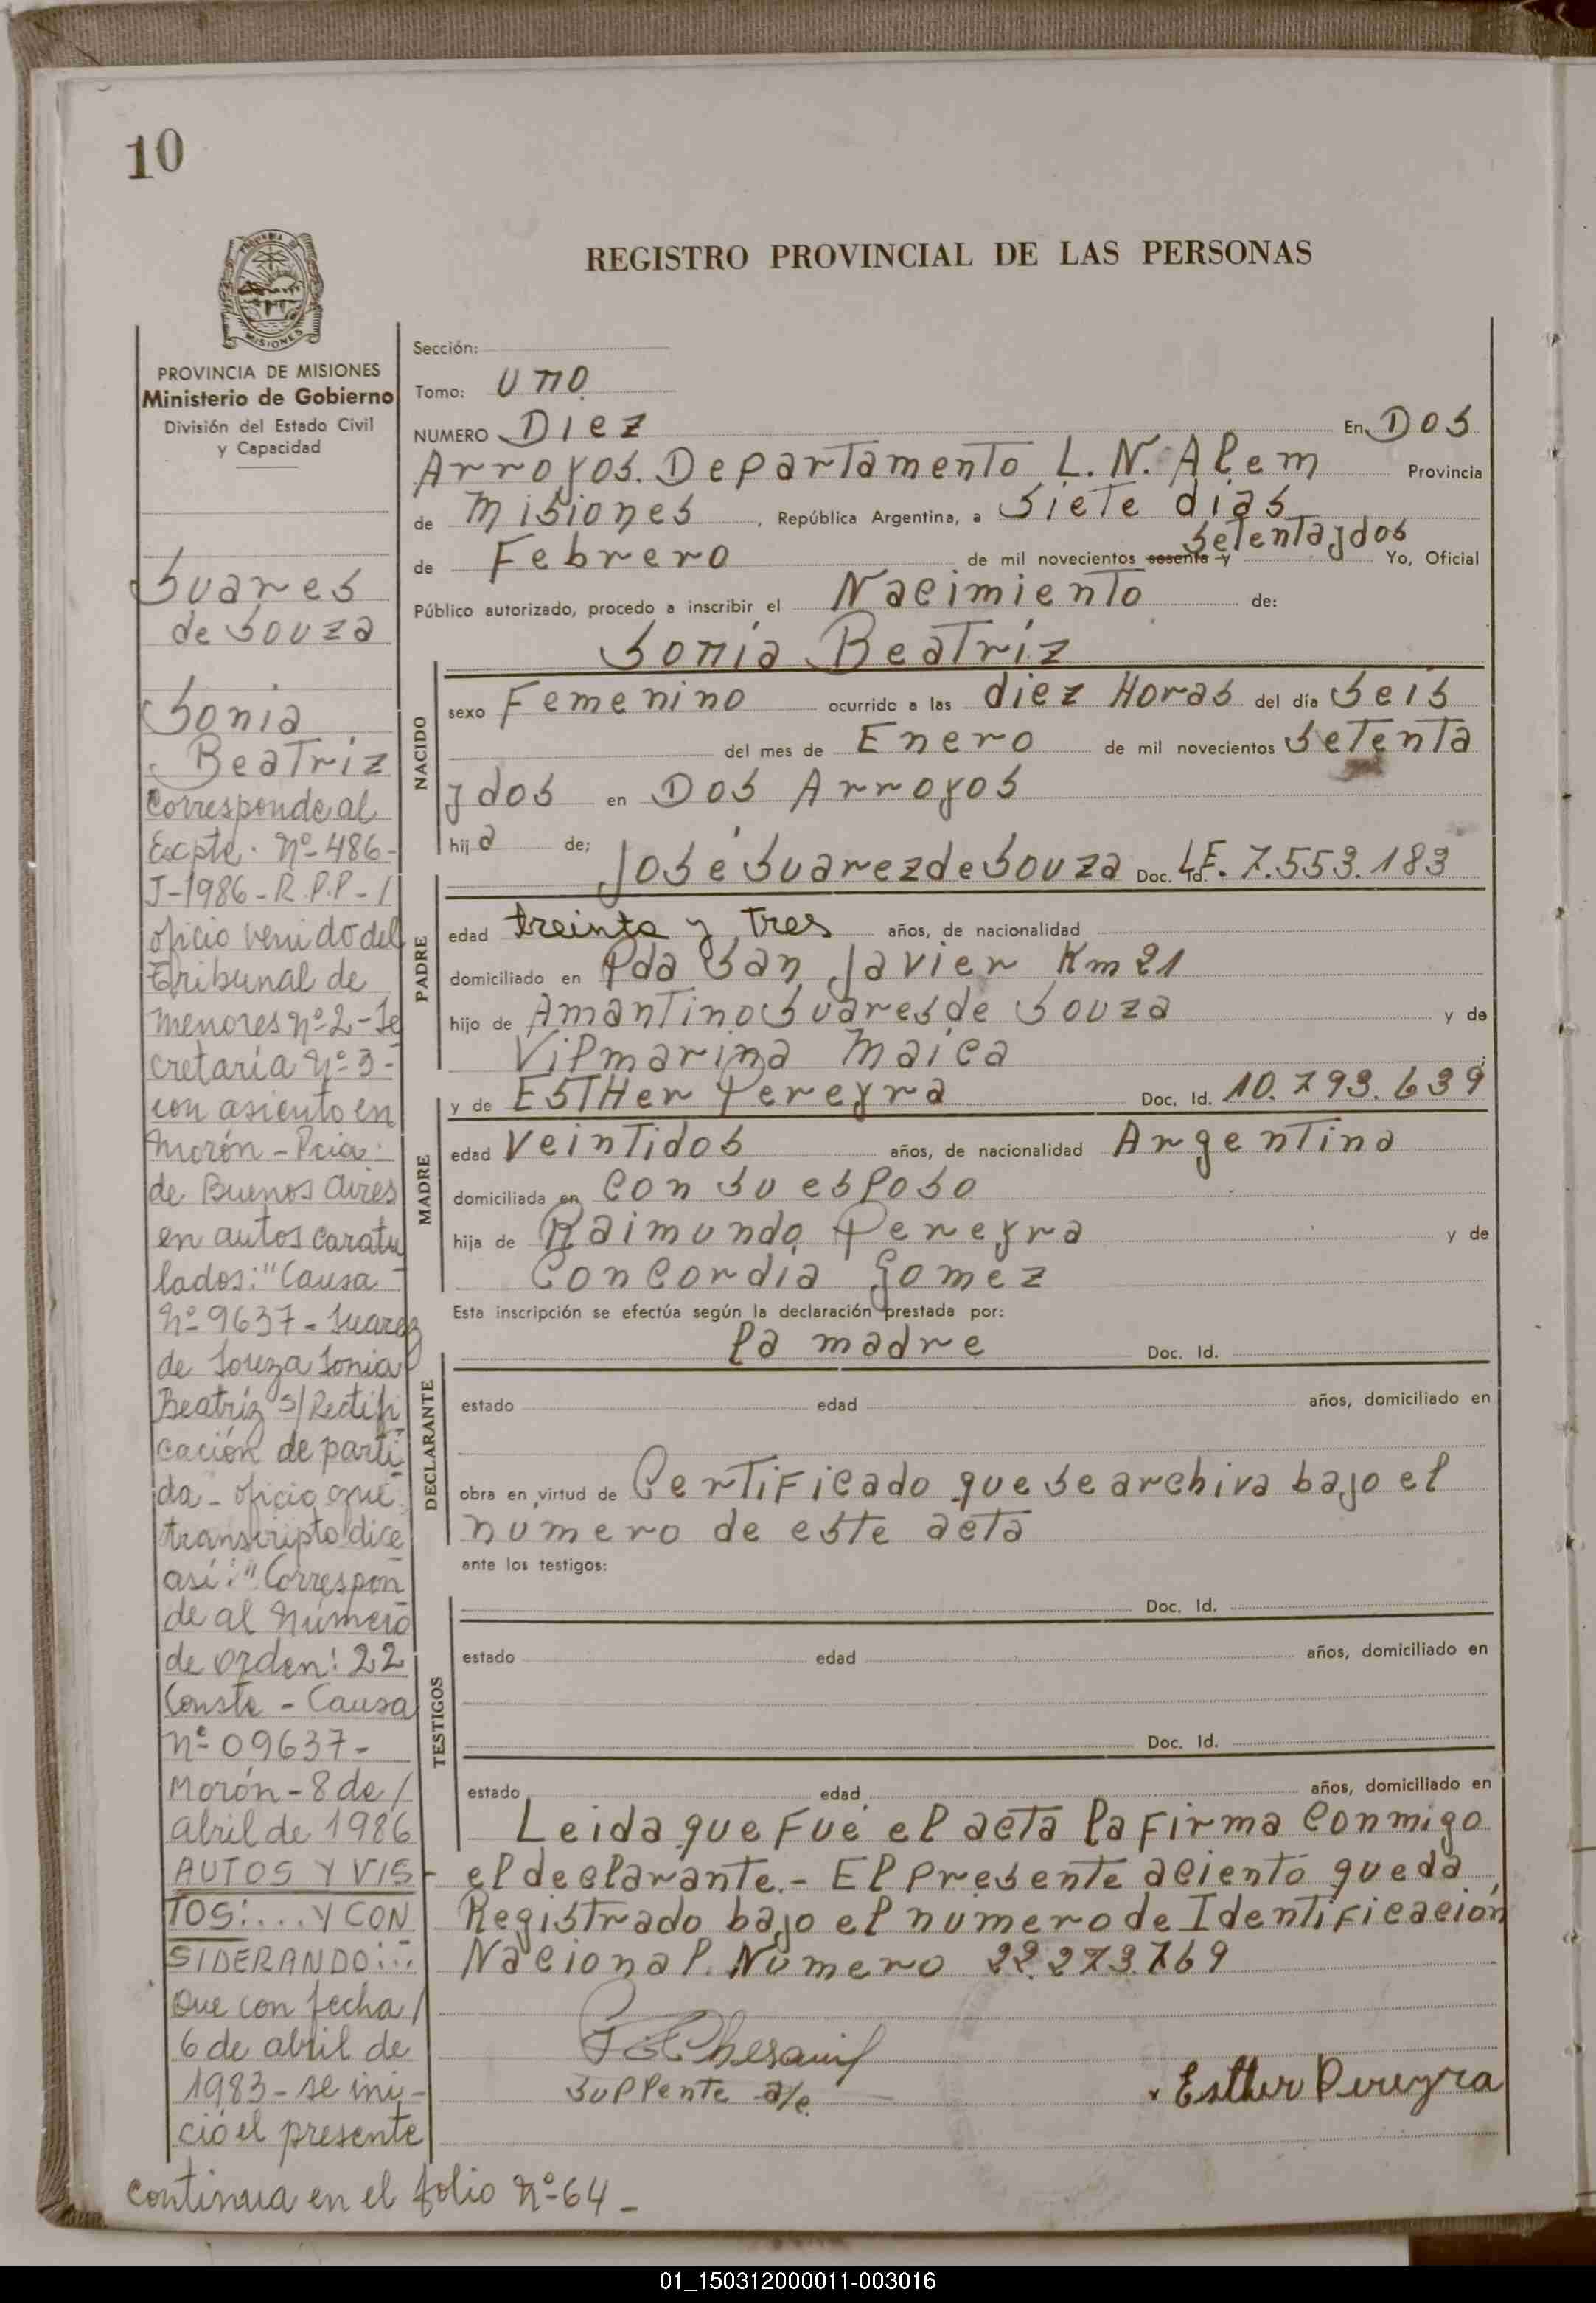 10
REGISTRO PROVINCIAL DE LAS PERSONAS
MISIONES
PROVINCIA DE MISIONES
Ministerio de Gobierno
División del Estado Civil
y Capacidad
Suares
de Souza
Sonia
Beatriz
Corresponde al
Expte. Nº 486-
J-1986-R.P.P-/
oficio venido del
Tribunal de
menores nº 2-Se
cretaría Nº 3-
con asiento en
Morón-Pcia.
de Buenos Aires
en autos caratu
lados: "Causa
Nº 9637-Suarez
de Souza Sonia
Beatríz s/Rectifi
cación de parti
da-oficio que
transcripto dice
así: "Correspon
de al Número
de orden: 22
Conste-Causa
nº 09637-
Morón-8 de/
abril de 1986
AUTOS Y VIS-
TOS:....Y CON
SIDERANDO:...
Que con fecha/
6 de abril de
1983-se ini-
ció el presente
continua en el folio Nº 64-
Sección:
Tomo: uno
NUMERO Diez En Dos
Arroyos. Departamento L. N. Alem Provincia
de Misiones, República Argentina, a Siete dias
de Febrero de mil novecientos sesenta y Setenta y dos Yo, Oficial
Público autorizado, procedo a inscribir el Nacimiento de:
Sonia Beatriz
NACIDO
sexo Femenino ocurrido a las diez Horas del día Seis
del mes de Enero de mil novecientos Setenta
y dos en Dos Arroyos
hija de;
José Suarez de Souza Doc. Id. LE. 7.553.183
PADRE
edad treinta y Tres años, de nacionalidad
domiciliado en Pda San Javier Km 21
hijo de Amantino Suares de Souza y de
Vilmarina Maica
y de ESTHer Pereyra Doc. Id. 10.793.639
MADRE
edad Veintidos años, de nacionalidad Argentina
domiciliada en Con su esposo
hija de Raimundo Pereyra y de
Concordia Gomez
Esta inscripción se efectúa según la declaración prestada por:
la madre Doc. Id.
DECLARANTE
estado edad años, domiciliado en
obra en virtud de Certificado que se archiva bajo el
numero de este acta
ante los testigos:
Doc. Id.
TESTIGOS
estado edad años, domiciliado en
Doc. Id.
estado edad años, domiciliado en
Leida que Fué el acta la Firma conmigo
el declarante.- El Presente aciento queda
Registrado bajo el numero de Identificación
Nacional. Número 22.273.769
Suplente a/c.
Esther Pereyra
01_150312000011-003016